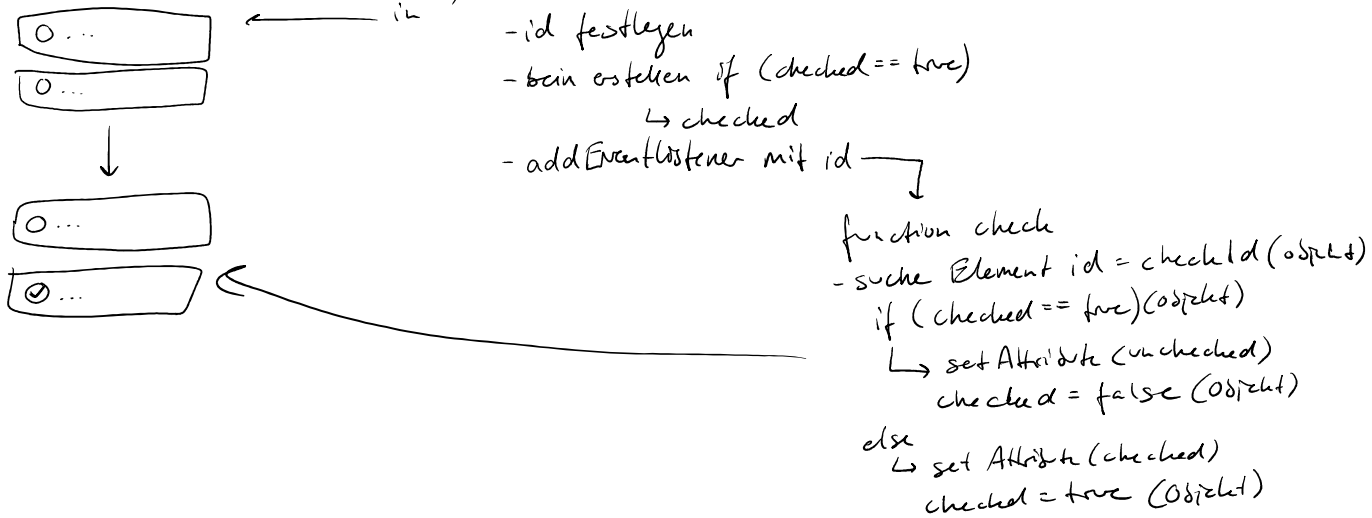 in
- id festlegen
- beim erstellen if (checked == true)
↳ checked
- addEventlistener mit id
function check
- suche Element id = checkId (objekt)
if (checked == true) (objekt)
↳ set Attribute (unchecked)
checked = false (Objekt)
else
↳ set Attribute (checked)
checked = true (Objekt)
...
...
...
...